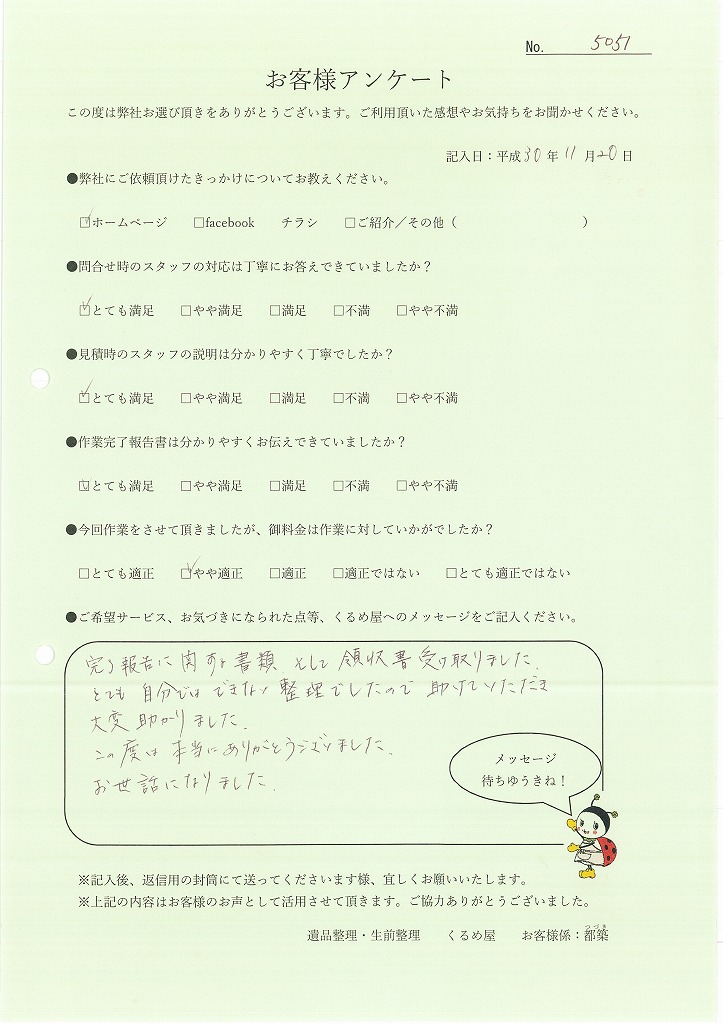 No. 5051
お客様アンケート
この度は弊社お選び頂きをありがとうございます。ご利用頂いた感想やお気持ちをお聞かせください。
記入日：平成30年11月20日
●弊社にご依頼頂けたきっかけについてお教えください。
☑ホームページ □facebook チラシ □ご紹介／その他（ ）
●問合せ時のスタッフの対応は丁寧にお答えできていましたか？
☑とても満足 □やや満足 □満足 □不満 □やや不満
●見積時のスタッフの説明は分かりやすく丁寧でしたか？
☑とても満足 □やや満足 □満足 □不満 □やや不満
●作業完了報告書は分かりやすくお伝えできていましたか？
☑とても満足 □やや満足 □満足 □不満 □やや不満
●今回作業をさせて頂きましたが、御料金は作業に対していかがでしたか？
□とても適正 ☑やや適正 □適正 □適正ではない □とても適正ではない
●ご希望サービス、お気づきになられた点等、くるめ屋へのメッセージをご記入ください。
完了報告に関する書類 として 領収書受け取りました.
とても自分ではできない整理でしたので 助けていただき
大変助かりました.
この度は本当にありがとうございました.
お世話になりました.
メッセージ
待ちゆうきね！
※記入後、返信用の封筒にて送ってくださいます様、宜しくお願いいたします。
※上記の内容はお客様のお声として活用させて頂きます。ご協力ありがとうございました。
つづき
遺品整理・生前整理 くるめ屋 お客様係：都築